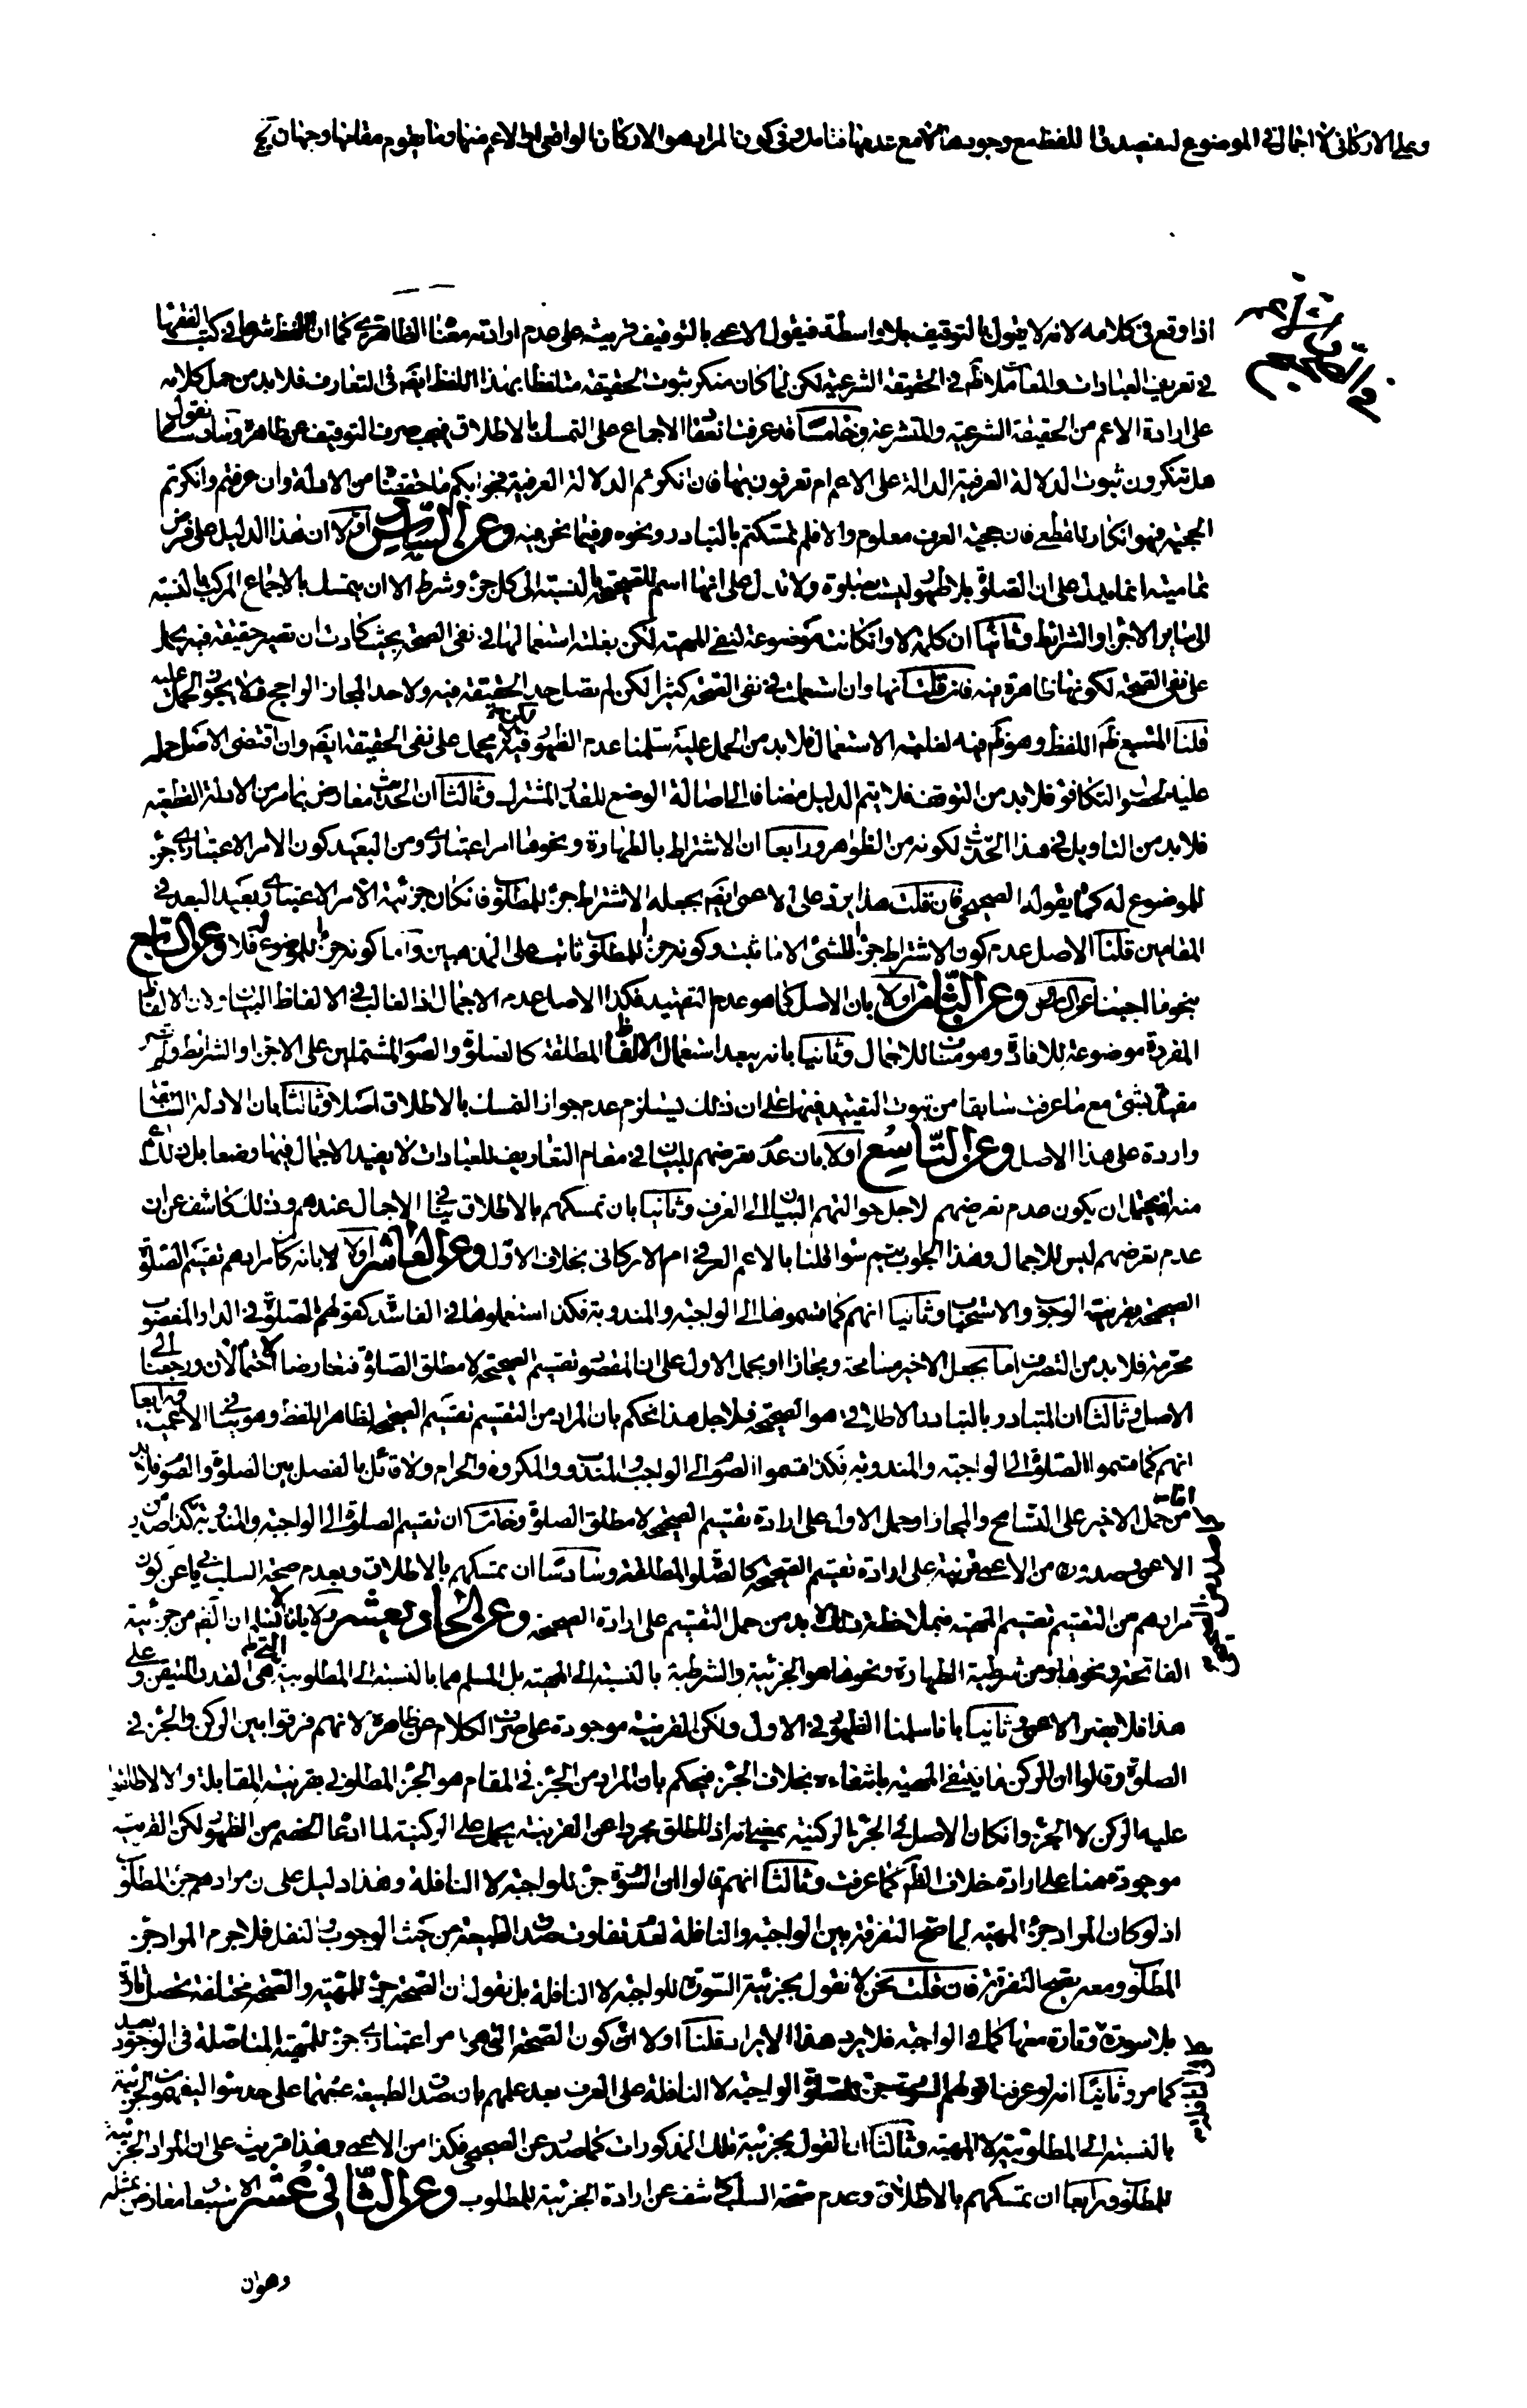 وعلى الاركانى لا اجمال فى الموضوع له فيصدق اللفظ مع وجودها لا مع عدمها فتامل وفى كون المراد هو الاركان الواقعى او الاعم منها وما يقوم مقامها وجهان
اذا وقع فى كلامه لانه لا يقول بالتوقيف بلا واسطة فيقول الاعمى بالتوقيف قرينة على عدم ارادته معناه الظاهرى كما ان اللفظ فى كتب الفقهاء
فى تعريف العبادات والمعاملات ظم فى الحقيقة الشرعية لكن لما كان منكر ثبوت الحقيقة متلفظا بهذا اللفظ ايضم فى التعاريف فلا بد من حمل كلامه
على ارادة الاعم من الحقيقة الشرعية والمتشرعة وخامسا قد عرفت انعقاد الاجماع على التمسك بالاطلاق فيجب صرف التوقيف عن ظاهره وسادسا نقول
هل تنكرون ثبوت الدلالة العرفية الدالة على الاعم ام تعرفون بها فان انكرتم الدلالة العرفية فجوابكم ما حققنا من الادلة وان عرفتم وانكرتم
الحجية فهو انكار للقطعى فان حجية العرف معلوم والا فلم تمسكتم بالتبادر ونحوه وفيما نحن فيه وعن السادس اولا ان هذا الدليل على فرض
تماميته انما يدل على ان الصلوة بلا طهور ليست بصلوة ولا تدل على انها اسم للصحيحة بالنسبة الى كل جزء وشرط الا ان يتمسك بالاجماع المركب بالنسبة
الى ساير الاجزاء والشرائط وثانيا ان كلمة لا وان كانت موضوعة لنفى المهية لكن بغلبة استعمالها فى نفى الصحة بحيث كادت ان تصير حقيقة فيه يحمل
على نفى الصحة لكونها ظاهرة فيه فان قلت انها وان استعملت فى نفى الصحة كثيرا لكن لم تصل حد الحقيقة فيه ولا حد المجاز الراجح فلا يجوز الحمل عليه
قلنا المتبع ظم اللفظ وهو ظم فيه لغلبة الاستعمال فلا بد من الحمل عليه سلمنا عدم الظهور فيه لكن لا يحمل على نفى الحقيقة ايضم وان اقتضى الاصل حمله
عليه لحصول التكافؤ فلا بد من التوقف فلا يتم الدليل مضافا الى اصالة الوضع للقدر المشترك وثالثا ان الحديث معارض بما مر من الادلة القطعية
فلا بد من التاويل فى هذا الحديث لكونه من الظواهر ورابعا ان الاشتراط بالطهارة ونحوها امر اعتبارى ومن البعيد كون الامر الاعتبارى جزء
للموضوع له كما يقوله الصحيحى فان قلت هذا يرد على الاعمى ايضم بجعله الاشتراط جزء للمطلوب فان كان جزئية الامر الاعتبارى بعيد البعد فى
المقامين قلنا الاصل عدم كون الاشتراط جزء للشئ الا ما ثبت وكونه جزء للمطلوب ثابت على المذهبين واما كونه جزء للموضوع له فلا وعن السابع
بنحو ما اجبنا عن السادس وعن الثامن اولا بان الاصل كما هو عدم التقييد فكذا الاصل عدم الاجمال اذ الغالب فى الالفاظ البيان ولان الالفاظ
المفردة موضوعة للافادة وهو مناف للاجمال وثانيا بانه يبعد استعمال الالفاظ المطلقة كالصلوة والصوم المشتملين على الاجزاء والشرائط
مقيدا بشئ مع ما عرفت سابقا من ثبوت التقييد فيها على ان ذلك يستلزم عدم جواز التمسك بالاطلاق اصلا وثالثا بان الادلة السابقة
واردة على هذا الاصل وعن التاسع اولا بان عدم تعرضهم للبيان فى مقام التعاريف للعبادات لا يفيد الاجمال فيها وضعا بل ذلك
منه فيحتمل ان يكون عدم تعرضهم لاجل حوالتهم البيان الى العرف وثانيا بان تمسكهم بالاطلاق ينافى الاجمال عندهم وذلك كاشف عن ان
عدم تعرضهم ليس للاجمال وهذا الجواب يتم سواء قلنا بالاعم العرفى ام الاركانى بخلاف الاول وعن العاشر اولا بانه كان مرادهم تقسيم الصلوة
الصحيحة بقرينة الوجوب والاستحباب وثانيا انهم كما قسموها الى الواجبة والمندوبة فكذا استعملوها فى الفاسد كقولهم الصلوة فى الدار المغصوب
محرمة فلا بد من التصرف اما بجعل الاخير مسامحة ومجازا او بحمل الاول على ان المقصود تقسيم الصحيحة لا مطلق الصلوة فتعارضا الاحتمالان ورجعنا الى
الاصل وثالثا ان المتبادر بالتبادر الاطلاقى هو الصحيحة فلاجل هذا نحكم بان المراد من التقسيم تقسيم الصحيحة لظاهر اللفظ وهو لا ينافى الاعمية ورابعا
انهم كما قسموا الصلوة الى الواجبة والمندوبة فكذا قسموا الصوم الى الواجب والمندوب والمكروه والحرام ولا قائل بالفصل بين الصلوة والصوم فلا بد
اما من حمل الاخير على التسامح والمجاز او حمل الاول على ارادة تقسيم الصحيحة لا مطلق الصلوة وخامسا ان تقسيم الصلوة الى الواجبة والمندوبة كذا من
الاعمى صدوره من الاعمى قرينة على ارادة تقسيم الصحيحة كالصلوة المطلقة وسادسا ان تمسكهم بالاطلاق وبعدم صحة السلب يابى عن كون
مرادهم من التقسيم تقسيم المهية فبملاحظة ذلك لا بد من حمل التقسيم على ارادة الصحيحة وعن الحادى عشر اولا بان المتبادر ان الفهم من جزئية
الفاتحة ونحوها ومن شرطية الطهارة ونحوها هو الجزئية والشرطية بالنسبة الى المهية بل المسلم هما بالنسبة الى المطلوبية التى هى القدر المتيقن وعلى
هذا فلا يضر الاعمى وثانيا بانا سلمنا الظهور فى الاول ولكن القرينة موجودة على صرف الكلام عن ظاهره لانهم فرقوا بين الركن والجزء فى
الصلوة وقالوا ان الركن ما ينتفى المهية بانتفاءه بخلاف الجزء فيحكم بان المراد من الجزء فى المقام هو الجزء المطلوبى بقرينة المقابلة والا لاطلقوا
عليه الركن لا الجزء وان كان الاصل فى الجزء الركنية بمعنى انه اذا اطلق مجردا عن القرينة يحمل على الركنية لما ادعاه الخصم من الظهور لكن القرينة
موجودة هنا على ارادة خلاف الظم كما عرفت وثالثا انهم قالوا ان السورة جزء للواجبة لا النافلة وهذا دليل على ان مرادهم جزء المطلوب
اذ لو كان المراد جزء المهية لما صح التفرقة بين الواجبة والنافلة لعدم تفاوت صدق الطبيعة من حيث الوجوب والنفل فلا جرم المراد جزء
المطلوب ومعه يصح التفرقة فان قلت نحن لا نقول بجزئية السورة للواجبة لا النافلة بل نقول ان الصحة جزء للمهية والصحة مختلفة تحصل تارة
بلا سورة وتارة معها كما فى الواجبة فلا يرد هذا الايراد قلنا اولا ان كون الصحة التى هى امر اعتبارى جزء للمهية المتاصلة فى الوجود بعيد
كما مر وثانيا انه لو عرفنا قولهم السورة جزء للصلوة الواجبة لا النافلة على العرف بعد علمهم بان صدق الطبيعة عنهما على حد سواء لفهموا الجزئية
بالنسبة الى المطلوبية لا المهية وثالثا ان القول بجزئية تلك المذكورات كما صدر عن الصحيحى فكذا من الاعمى وهذا قرينة على ان المراد الجزئية
للمطلوب ورابعا ان تمسكهم بالاطلاق وعدم صحة السلب كاشف عن ارادة الجزئية للمطلوب وعن الثانى عشر الاستبعاد معارض بمثله
وهو ان